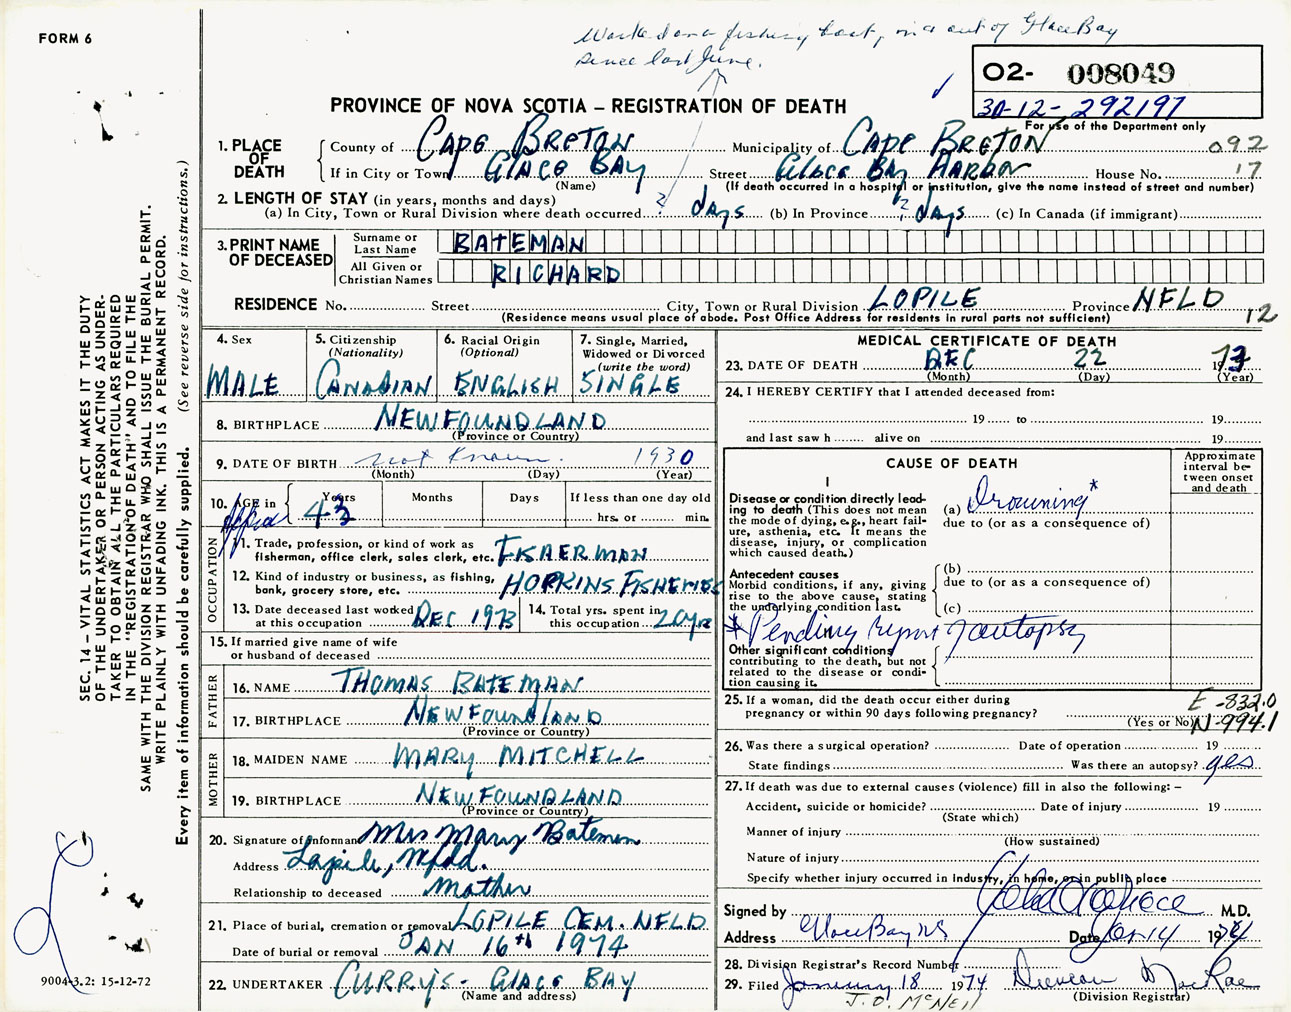 FORM 6
Worked on a fishing boat, in & out of Glace Bay
since last June.
O2- 008049
30-12-292197
For use of the Department only
PROVINCE OF NOVA SCOTIA – REGISTRATION OF DEATH
1. PLACE OF DEATH
County of CAPE BRETON Municipality of CAPE BRETON 092
If in City or Town GLACE BAY Street GLACE BAY HARBOR House No. 17
(Name) (If death occurred in a hospital or institution, give the name instead of street and number)
2. LENGTH OF STAY (in years, months and days)
(a) In City, Town or Rural Division where death occurred ? days (b) In Province ? days (c) In Canada (if immigrant)
3. PRINT NAME OF DECEASED
Surname or Last Name BATEMAN
All Given or Christian Names RICHARD
RESIDENCE No. Street City, Town or Rural Division LOPILE Province NFLD
(Residence means usual place of abode. Post Office Address for residents in rural parts not sufficient) 12
4. Sex MALE
5. Citizenship (Nationality) CANADIAN
6. Racial Origin (Optional) ENGLISH
7. Single, Married, Widowed or Divorced (write the word) SINGLE
8. BIRTHPLACE NEWFOUNDLAND
(Province or Country)
9. DATE OF BIRTH not known. 1930
(Month) (Day) (Year)
10. AGE in Years 43 Months Days If less than one day old
hrs. or min.
OCCUPATION
11. Trade, profession, or kind of work as
fisherman, office clerk, sales clerk, etc. FISHERMAN
12. Kind of industry or business, as fishing,
bank, grocery store, etc. HOPKINS FISHERIES
13. Date deceased last worked
at this occupation DEC 1973
14. Total yrs. spent in
this occupation 20yrs
15. If married give name of wife
or husband of deceased
FATHER
16. NAME THOMAS BATEMAN
17. BIRTHPLACE NEWFOUNDLAND
(Province or Country)
MOTHER
18. MAIDEN NAME MARY MITCHELL
19. BIRTHPLACE NEWFOUNDLAND
(Province or Country)
20. Signature of informant Mrs Mary Bateman
Address Lapile, Nfld.
Relationship to deceased mother
21. Place of burial, cremation or removal LOPILE CEM. NFLD
Date of burial or removal JAN 16th 1974
22. UNDERTAKER CURRY'S - GLACE BAY
(Name and address)
MEDICAL CERTIFICATE OF DEATH
23. DATE OF DEATH DEC 22 1973
(Month) (Day) (Year)
24. I HEREBY CERTIFY that I attended deceased from:
19 to 19
and last saw h alive on 19
CAUSE OF DEATH
Approximate interval be-tween onset and death
I
Disease or condition directly lead-
ing to death (This does not mean
the mode of dying, e.g., heart fail-
ure, asthenia, etc. It means the
disease, injury, or complication
which caused death.)
(a) Drowning*
due to (or as a consequence of)
Antecedent causes
Morbid conditions, if any, giving
rise to the above cause, stating
the underlying condition last.
(b)
due to (or as a consequence of)
(c)
* Pending report of autopsy
Other significant conditions
contributing to the death, but not
related to the disease or condi-
tion causing it.
25. If a woman, did the death occur either during
pregnancy or within 90 days following pregnancy?
(Yes or No)
E-832.0
N-994.1
26. Was there a surgical operation? Date of operation 19
State findings Was there an autopsy? yes
27. If death was due to external causes (violence) fill in also the following: –
Accident, suicide or homicide? Date of injury 19
(State which)
Manner of injury
(How sustained)
Nature of injury
Specify whether injury occurred in industry, in home, or in public place
Signed by M.D.
Address Glace Bay NS Date Jan 14 1974
28. Division Registrar's Record Number
29. Filed January 18 1974 Duncan MacRae
J.D. McNeil (Division Registrar)
SEC. 14 – VITAL STATISTICS ACT MAKES IT THE DUTY
OF THE UNDERTAKER OR PERSON ACTING AS UNDER-
TAKER TO OBTAIN ALL THE PARTICULARS REQUIRED
IN THE "REGISTRATION OF DEATH" AND TO FILE THE
SAME WITH THE DIVISION REGISTRAR WHO SHALL ISSUE THE BURIAL PERMIT.
WRITE PLAINLY WITH UNFADING INK. THIS IS A PERMANENT RECORD.
Every item of information should be carefully supplied. (See reverse side for instructions.)
9004-3.2: 15-12-72